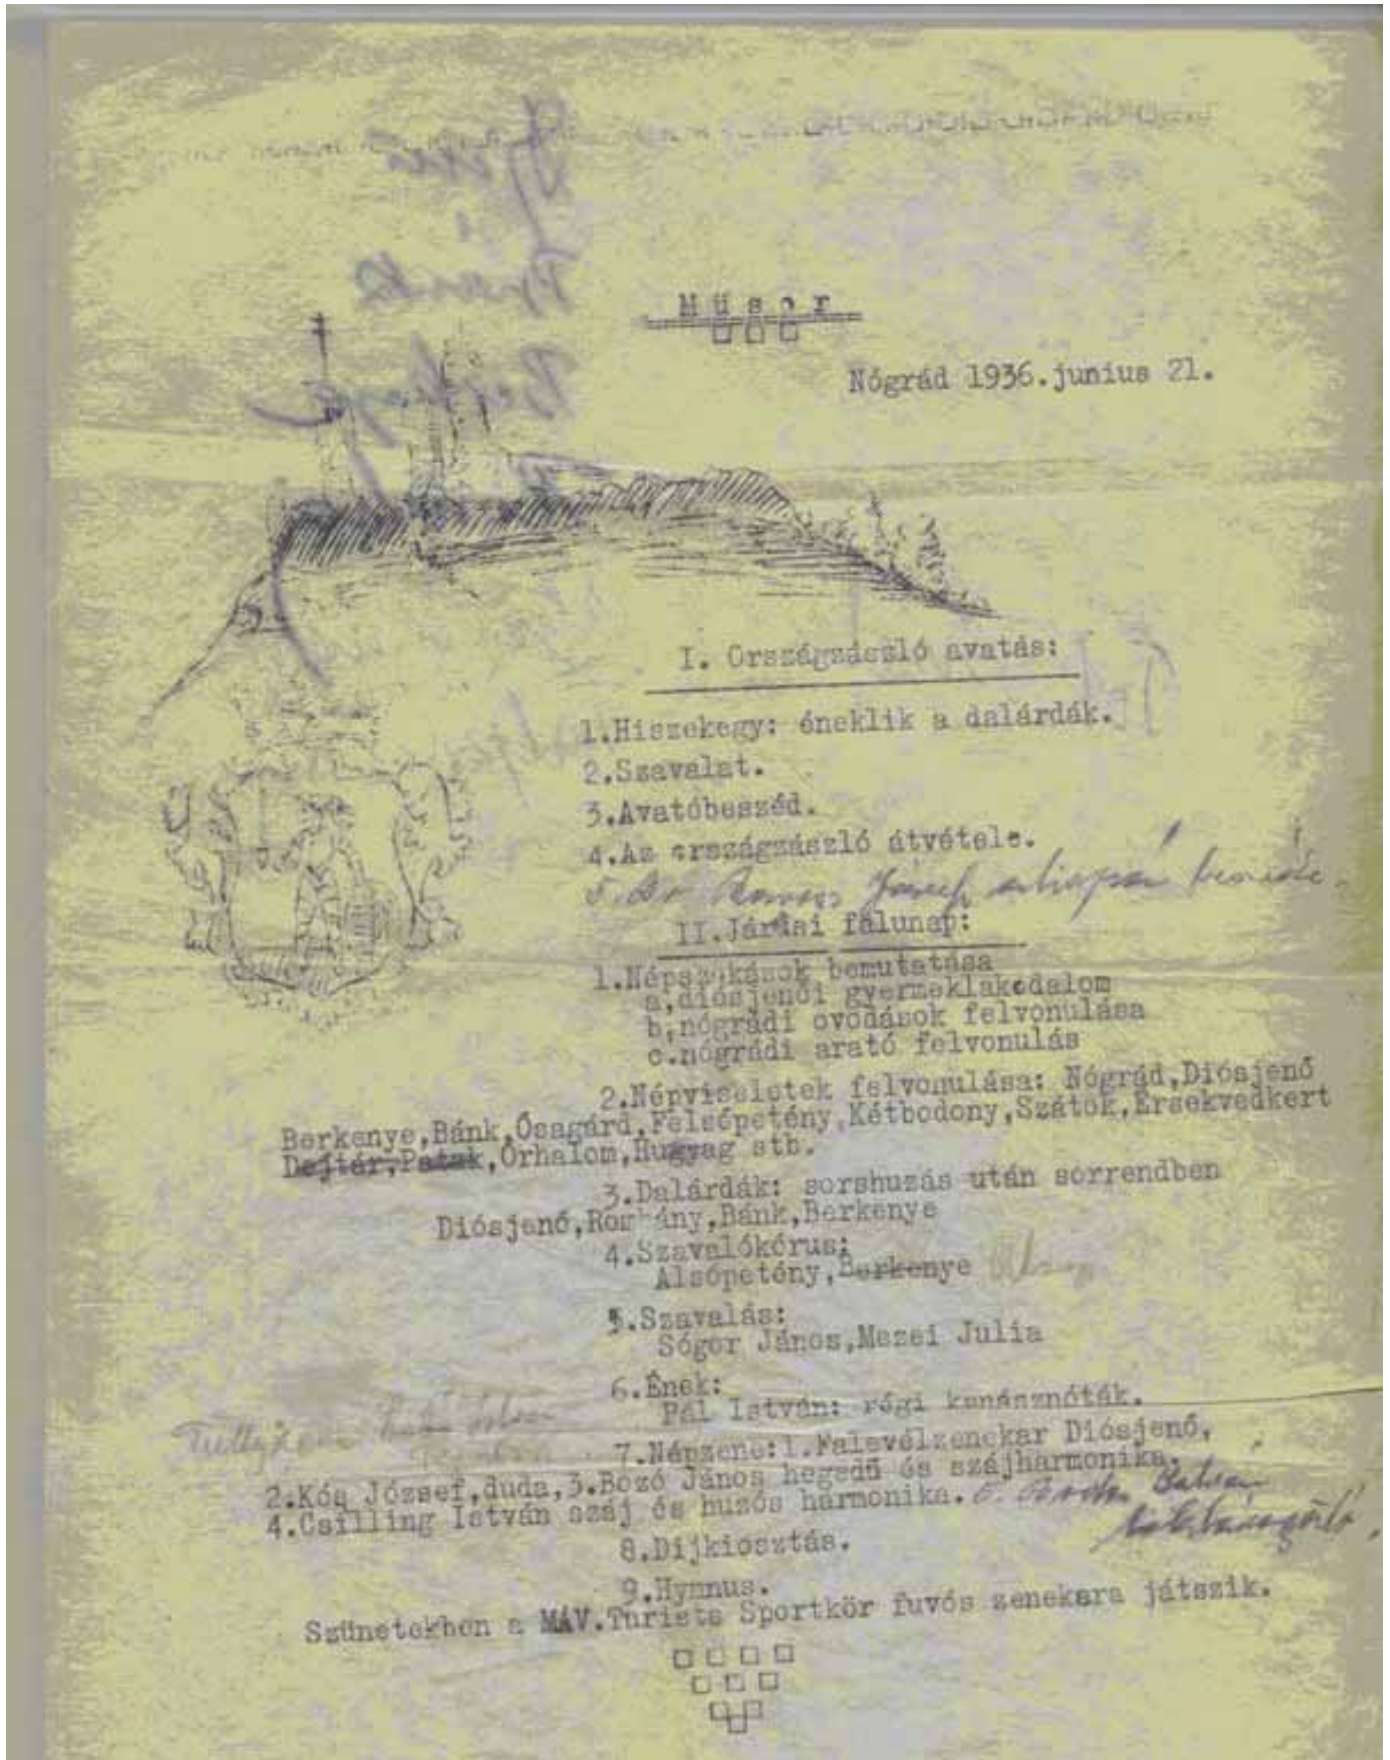 Műsor
Nógrád 1936.junius 21.
I. Országzászló avatás:
1.Hiszekegy: éneklik a dalárdák.
2.Szavalat.
3.Avatóbeszéd.
4.Az országzászló átvétele.
5. Dr József
II.Járási falunap:
1.Népszokások bemutatása
a,diósjenői gyermeklakodalom
b,nógrádi ovodások felvonulása
c.nógrádi arató felvonulás
2.Népviseletek felvonulása: Nógrád,Diósjenő
Berkenye,Bánk,Ősagárd,Felsőpetény,Kétbodony,Szátok,Érsekvedkert
Dejtár,Patak,Őrhalom,Hugyag stb.
3.Dalárdák: sorshuzás után sorrendben
Diósjenő,Romhány,Bánk,Berkenye
4.Szavalókórus:
Alsópetény,Berkenye
5.Szavalás:
Sógor János,Mezei Julia
6.Ének:
Pál István: régi kanásznóták.
7.Népzene:1.Falevélzenekar Diósjenő,
2.Kós József,duda,3.Bozó János hegedű és szájharmonika.
4.Csilling István száj és huzós harmonika. 5.
8.Dijkiosztás.
9.Hymnus.
Szünetekben a MÁV.Turista Sportkör fuvós zenekara játszik.